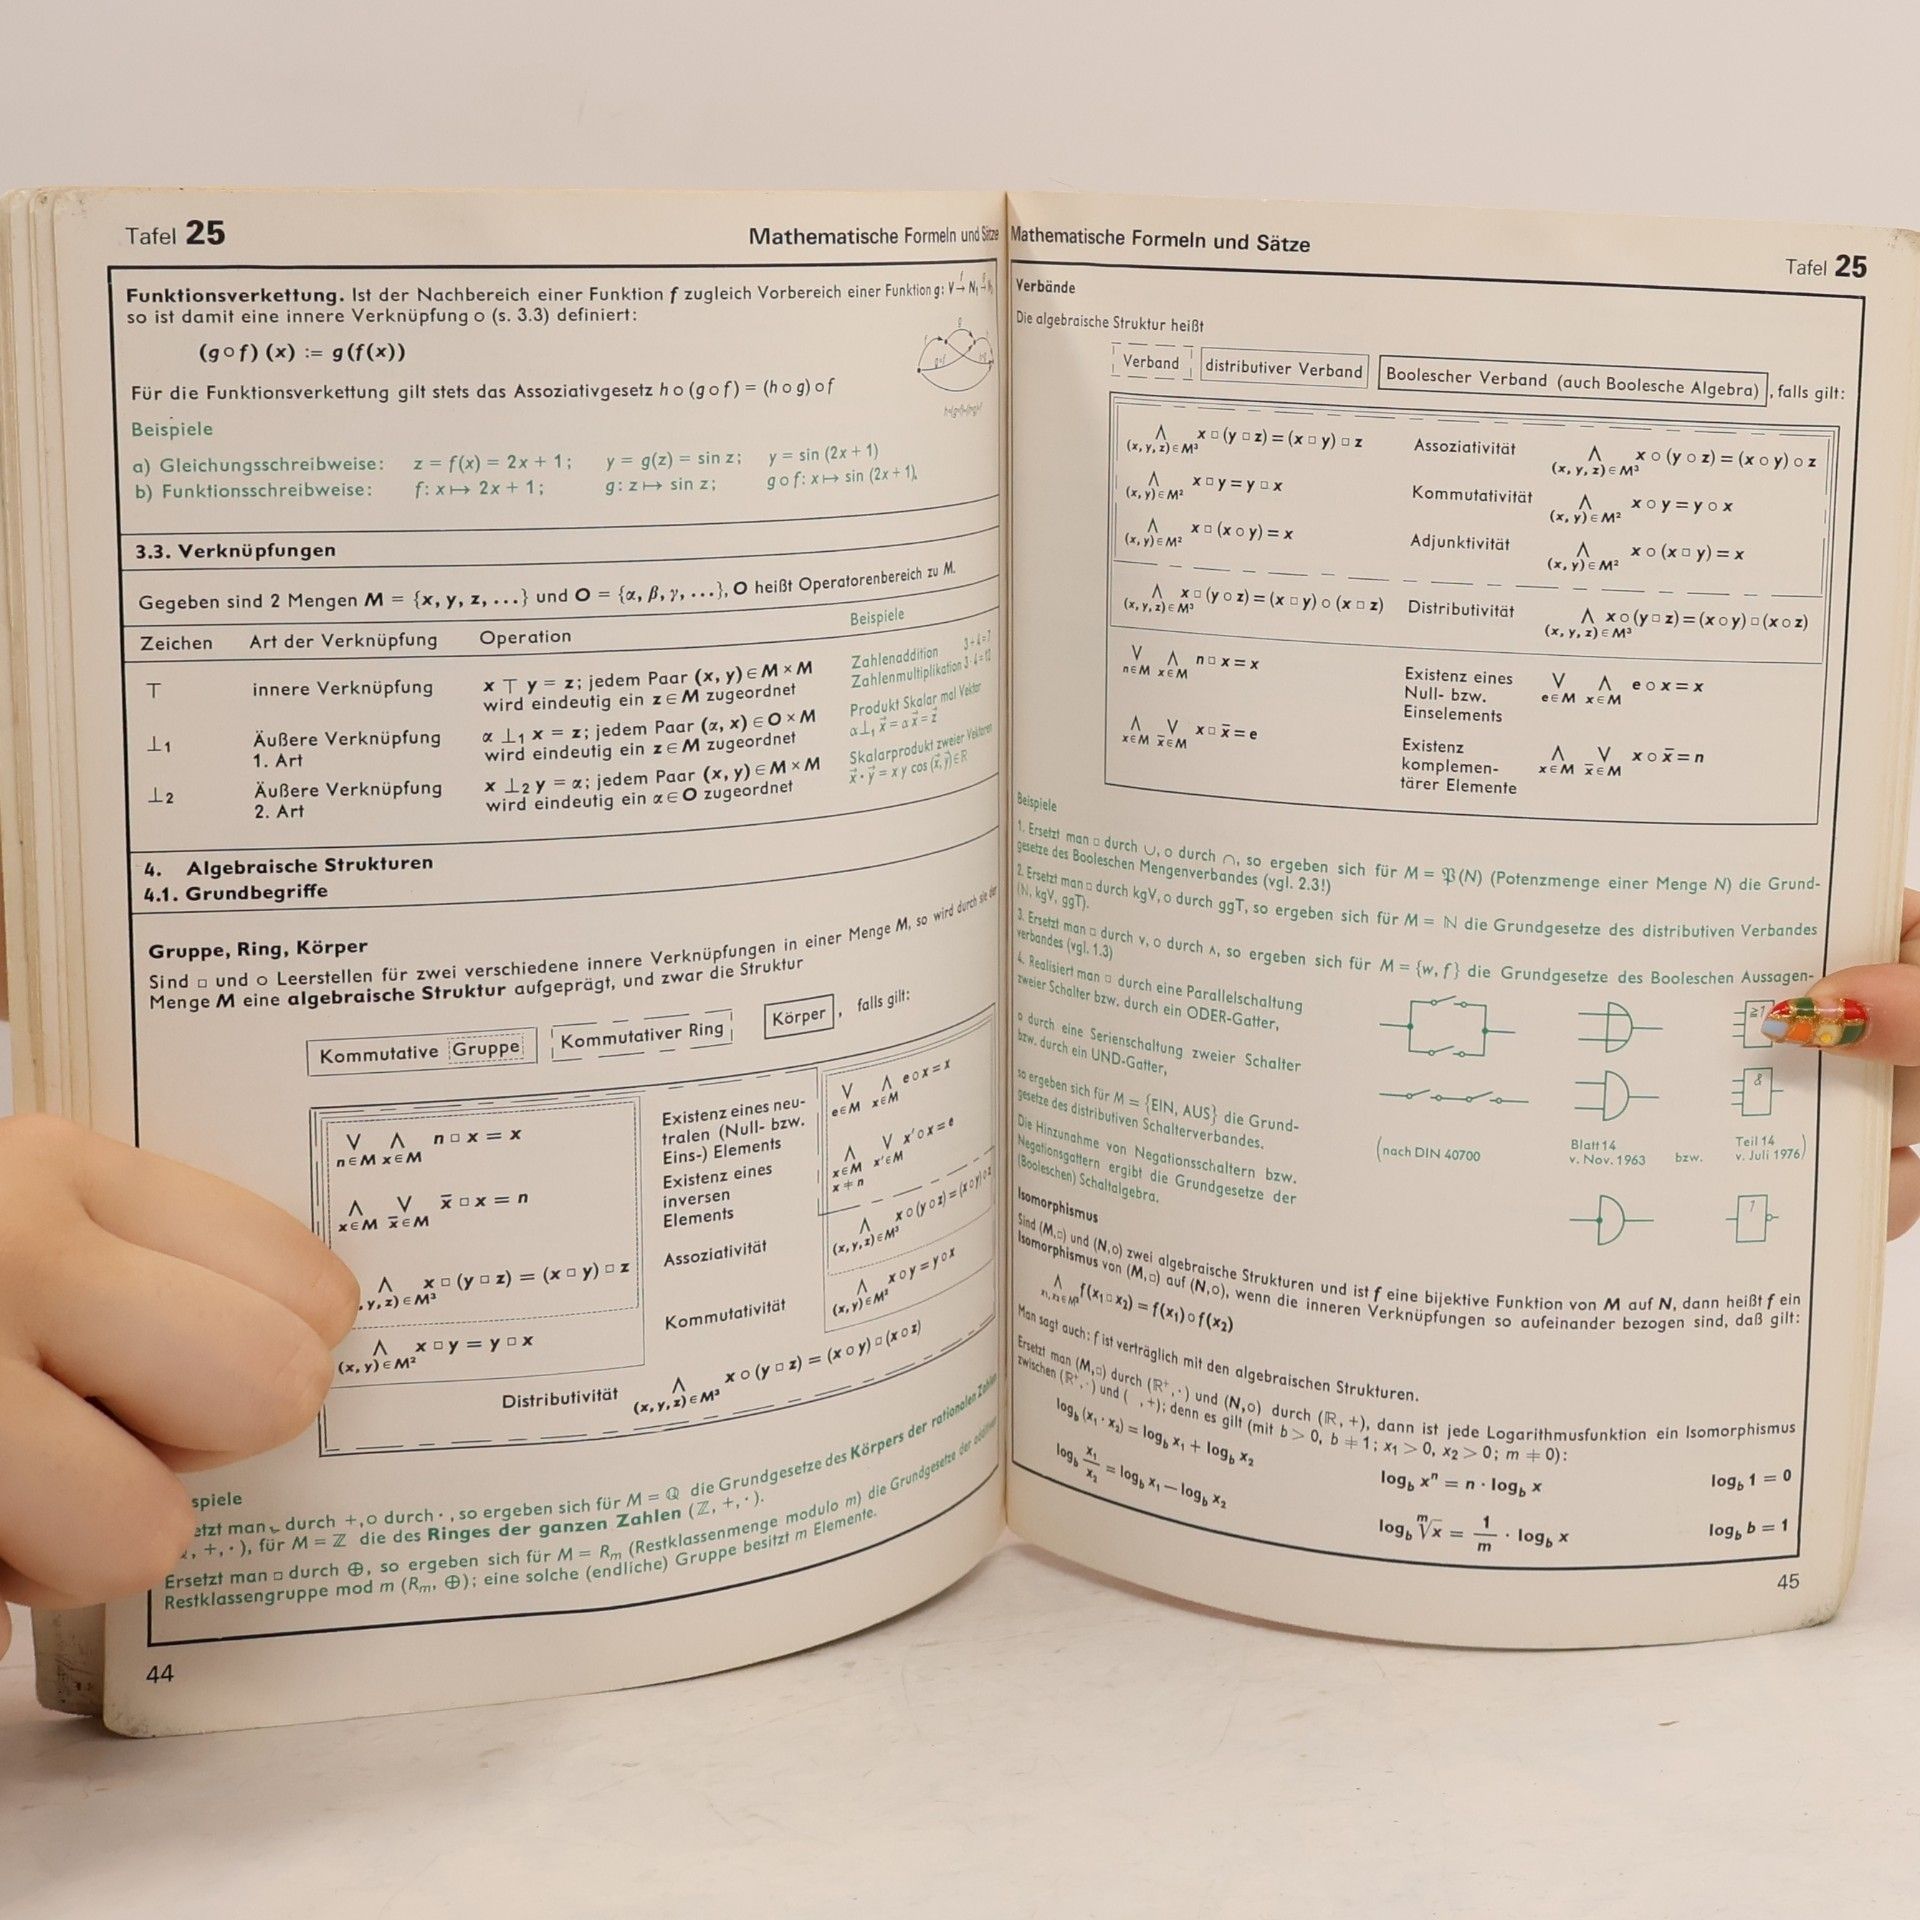 Tafel 25
Mathematische Formeln und Sätze
Funktionsverkettung. Ist der Nachbereich einer Funktion f zugleich Vorbereich einer Funktion g:
so ist damit eine innere Verknüpfung o (s. 3.3) definiert:
(g∘f) (x) := g(f(x))
Für die Funktionsverkettung gilt stets das Assoziativgesetz h∘(g∘f) = (h∘g)∘f
Beispiele
a) Gleichungsschreibweise: z = f(x) = 2x + 1; y = g(z) = sin z; y = sin (2x + 1)
b) Funktionsschreibweise: f: x ↦ 2x + 1; g: z ↦ sin z; g∘f: x ↦ sin (2x + 1).
3.3. Verknüpfungen
Gegeben sind 2 Mengen M = {x, y, z, ...} und O = {α, β, γ, ...}, O heißt Operatorenbereich zu M.
Zeichen Art der Verknüpfung Operation Beispiele
⊤ innere Verknüpfung x ⊤ y = z; jedem Paar (x, y) ∈ M × M Zahlenaddition 3+4=7
wird eindeutig ein z ∈ M zugeordnet Zahlenmultiplikation 3·4=12
⊥₁ Äußere Verknüpfung α ⊥₁ x = z; jedem Paar (α, x) ∈ O × M Produkt Skalar mal Vektor
1. Art wird eindeutig ein z ∈ M zugeordnet α ⊥₁ x⃗ = α x⃗ = z⃗
⊥₂ Äußere Verknüpfung x ⊥₂ y = α; jedem Paar (x, y) ∈ M × M Skalarprodukt zweier Vektoren
2. Art wird eindeutig ein α ∈ O zugeordnet x⃗ · y⃗ = x y cos (x⃗, y⃗) ∈ ℝ
4. Algebraische Strukturen
4.1. Grundbegriffe
Gruppe, Ring, Körper
Sind □ und ∘ Leerstellen für zwei verschiedene innere Verknüpfungen in einer Menge M, so wird durch sie der
Menge M eine algebraische Struktur aufgeprägt, und zwar die Struktur
Kommutative Gruppe Kommutativer Ring Körper, falls gilt:
⋁ n∈M ⋀ x∈M n □ x = x
Existenz eines neu-
tralen (Null- bzw.
Eins-) Elements
⋁ e∈M ⋀ x∈M e∘x = x
⋀ x∈M ⋁ x̄∈M x̄ □ x = n
Existenz eines
inversen
Elements
⋀ x∈M x≠n ⋁ x'∈M x'∘x = e
⋀ , y, z)∈M³ x □ (y □ z) = (x □ y) □ z
Assoziativität
⋀ (x, y, z)∈M³ x∘(y∘z) = (x∘y)∘z
⋀ (x, y)∈M² x □ y = y □ x
Kommutativität
⋀ (x, y)∈M² x∘y = y∘x
Distributivität ⋀ (x, y, z)∈M³ x∘(y □ z) = (x∘y) □ (x∘z)
spiele
etzt man durch +, ∘ durch ·, so ergeben sich für M = ℚ die Grundgesetze des Körpers der rationalen Zahlen
, +, ·), für M = ℤ die des Ringes der ganzen Zahlen (ℤ, +, ·).
Ersetzt man □ durch ⊕, so ergeben sich für M = Rₘ (Restklassenmenge modulo m) die Grundgesetze der additiven
Restklassengruppe mod m (Rₘ, ⊕); eine solche (endliche) Gruppe besitzt m Elemente.
44
Mathematische Formeln und Sätze
Tafel 25
Verbände
Die algebraische Struktur heißt
Verband distributiver Verband Boolescher Verband (auch Boolesche Algebra), falls gilt:
⋀ (x, y, z)∈M³ x □ (y □ z) = (x □ y) □ z Assoziativität ⋀ (x, y, z)∈M³ x∘(y∘z) = (x∘y)∘z
⋀ (x, y)∈M² x □ y = y □ x Kommutativität ⋀ (x, y)∈M² x∘y = y∘x
⋀ (x, y)∈M² x □ (x∘y) = x Adjunktivität ⋀ (x, y)∈M² x∘(x □ y) = x
⋀ (x, y, z)∈M³ x □ (y∘z) = (x □ y)∘(x □ z) Distributivität ⋀ (x, y, z)∈M³ x∘(y □ z) = (x∘y) □ (x∘z)
⋁ n∈M ⋀ x∈M n □ x = x
Existenz eines
Null- bzw.
Einselements
⋁ e∈M ⋀ x∈M e∘x = x
⋀ x∈M ⋁ x̄∈M x □ x̄ = e
Existenz
komplemen-
tärer Elemente
⋀ x∈M ⋁ x̄∈M x∘x̄ = n
Beispiele
1. Ersetzt man □ durch ∪, ∘ durch ∩, so ergeben sich für M = 𝔓(N) (Potenzmenge einer Menge N) die Grund-
gesetze des Booleschen Mengenverbandes (vgl. 2.3!)
2. Ersetzt man □ durch kgV, ∘ durch ggT, so ergeben sich für M = ℕ die Grundgesetze des distributiven Verbandes
(ℕ, kgV, ggT).
3. Ersetzt man □ durch ∨, ∘ durch ∧, so ergeben sich für M = {w, f} die Grundgesetze des Booleschen Aussagen-
verbandes (vgl. 1.3)
4. Realisiert man □ durch eine Parallelschaltung
zweier Schalter bzw. durch ein ODER-Gatter,
≥1
∘ durch eine Serienschaltung zweier Schalter
bzw. durch ein UND-Gatter,
&
so ergeben sich für M = {EIN, AUS} die Grund-
gesetze des distributiven Schalterverbandes.
(nach DIN 40700 Blatt 14 v. Nov. 1963 bzw. Teil 14 v. Juli 1976)
Die Hinzunahme von Negationsschaltern bzw.
Negationsgattern ergibt die Grundgesetze der
(Booleschen) Schaltalgebra.
1
Isomorphismus
Sind (M, □) und (N, ∘) zwei algebraische Strukturen und ist f eine bijektive Funktion von M auf N, dann heißt f ein
Isomorphismus von (M, □) auf (N, ∘), wenn die inneren Verknüpfungen so aufeinander bezogen sind, daß gilt:
⋀ x₁, x₂∈M² f(x₁ □ x₂) = f(x₁)∘f(x₂)
Man sagt auch: f ist verträglich mit den algebraischen Strukturen.
Ersetzt man (M, □) durch (ℝ⁺, ·) und (N, ∘) durch (ℝ, +), dann ist jede Logarithmusfunktion ein Isomorphismus
zwischen (ℝ⁺, ·) und ( , +); denn es gilt (mit b > 0, b ≠ 1; x₁ > 0, x₂ > 0; m ≠ 0):
log_b (x₁ · x₂) = log_b x₁ + log_b x₂ log_b xⁿ = n · log_b x log_b 1 = 0
log_b x₁/x₂ = log_b x₁ − log_b x₂ log_b ᵐ√x = 1/m · log_b x log_b b = 1
45